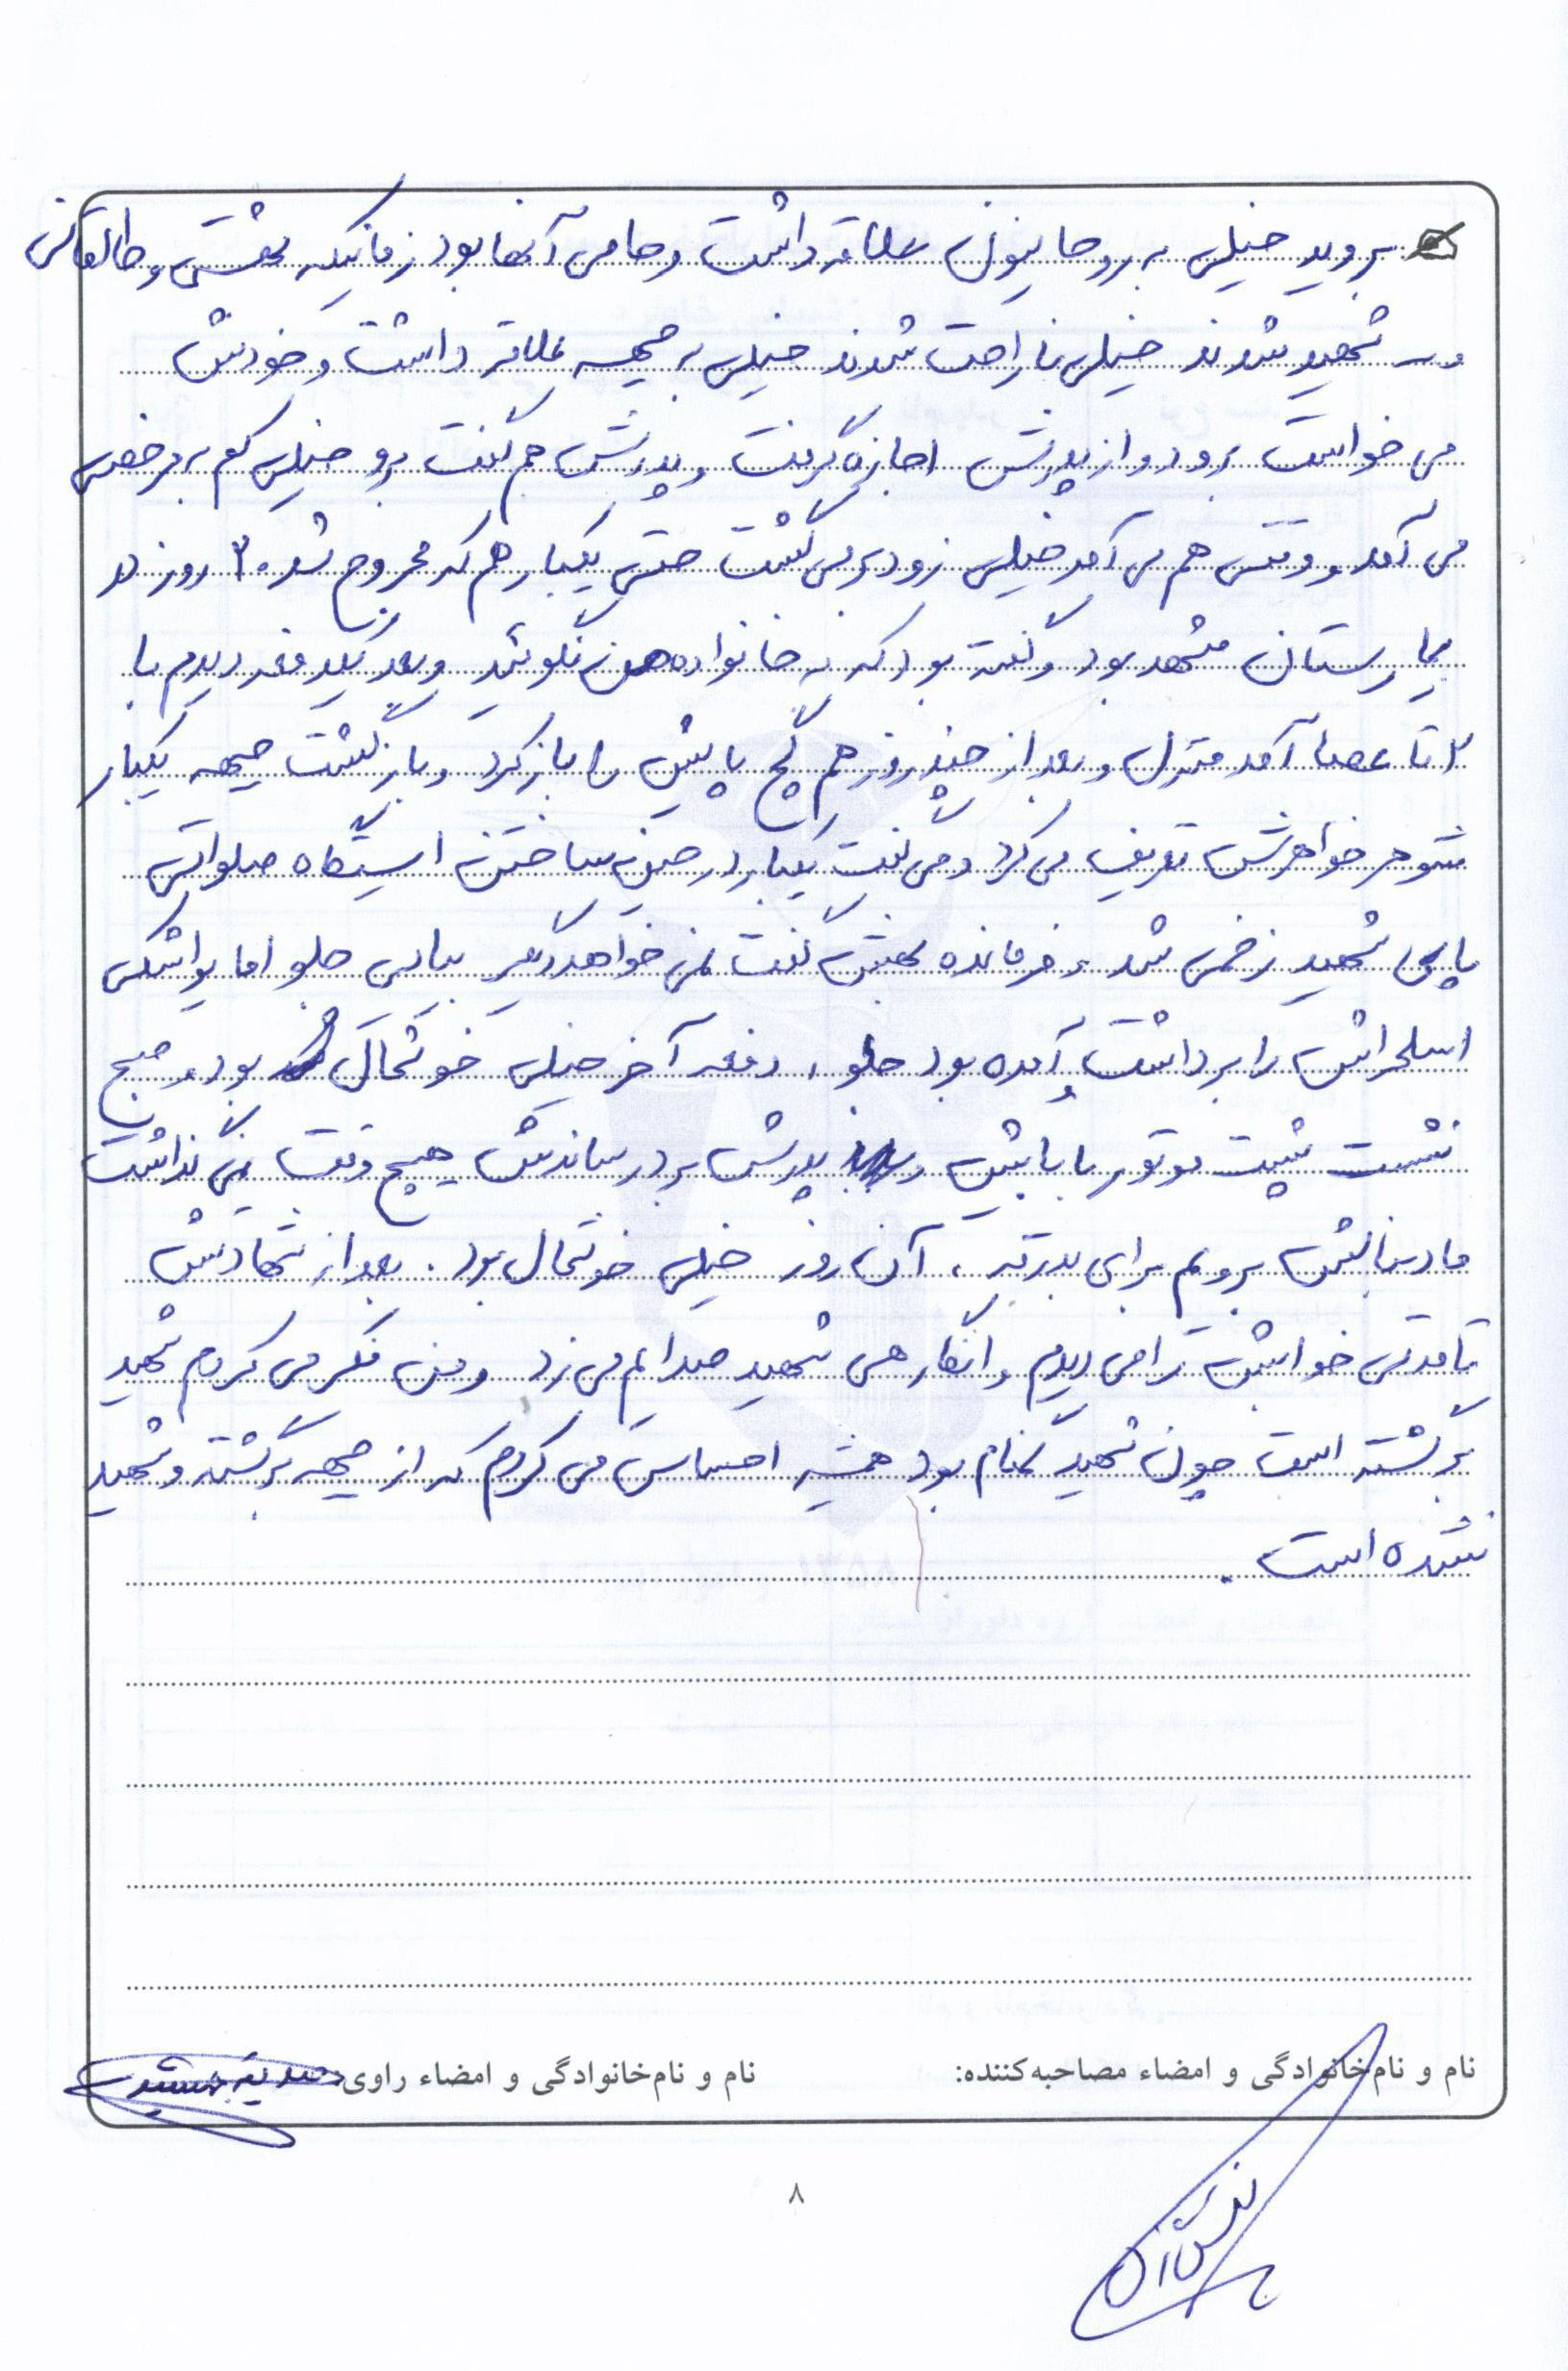 بروید خیلی به روحانیون علاقه داشت و حامی آنها بود زمانیکه بهشتی و طالقانی
و ... شهید شدند خیلی ناراحت شدند خیلی به جبهه علاقه داشت و خودش
می خواست برود و از پدرش اجازه گرفت و پدرش هم گفت برو خیلی کم به مرخصی
می آمد و وقتی هم می آمد خیلی زود بر می گشت حتی یکبار هم که مجروح شد ۲۰ روز در
بیمارستان مشهد بود و گفته بود که به خانواده من نگوئید و بعد یکدفعه دیدم با
۲ تا عصا آمد منزل و بعد از چند روز هم گچ پایش را باز کرد و باز گشت جبهه یکبار
شوهر خواهرش تعریف می کرد و می گفت یکبار در حین ساختن ایستگاه صلواتی
پای شهید زخمی شد و فرمانده بهش گفت نمی خواهد دیگر بیایی جلو اما یواشکی
اسلحه اش را برداشت و آمده بود جلو، دفعه آخر خیلی خوشحال بود و صبح
نشست پشت موتور باباش و پدرش برد رساندش هیچ وقت نمی گذاشت
ما دنبالش برویم برای بدرقه، آن روز خیلی خوشحال بود. بعد از شهادتش
تا مدتی خوابش را می دیدم و انگار هی شهید صدایم می زد و من فکر می کردم شهید
برگشته است چون شهید گمنام بود همیشه احساس می کردم که از جبهه برگشته و شهید
نشده است.
نام و نام‌خانوادگی و امضاء مصاحبه‌کننده:
نام و نام‌خانوادگی و امضاء راوی:
۸